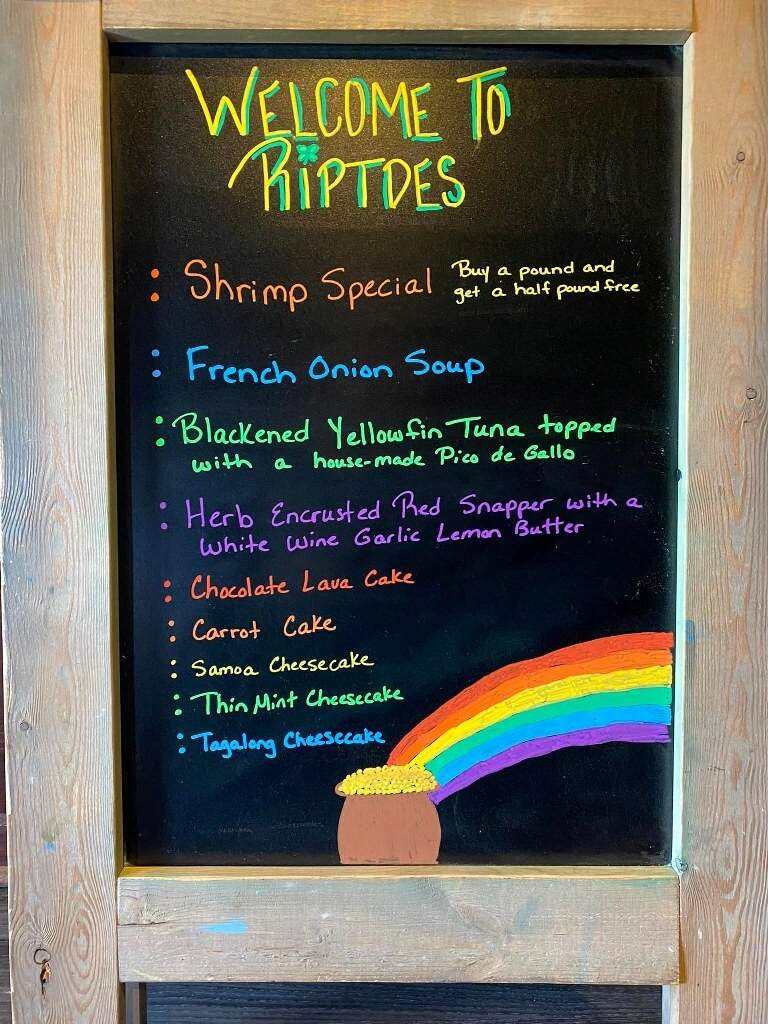 WELCOME TO
RIPTDES
: Shrimp Special Buy a pound and
get a half pound free
: French Onion Soup
: Blackened Yellowfin Tuna topped
with a house-made Pico de Gallo
: Herb Encrusted Red Snapper with a
White Wine Garlic Lemon Butter
: Chocolate Lava Cake
: Carrot Cake
: Samoa Cheesecake
: Thin Mint Cheesecake
: Tagalong Cheesecake